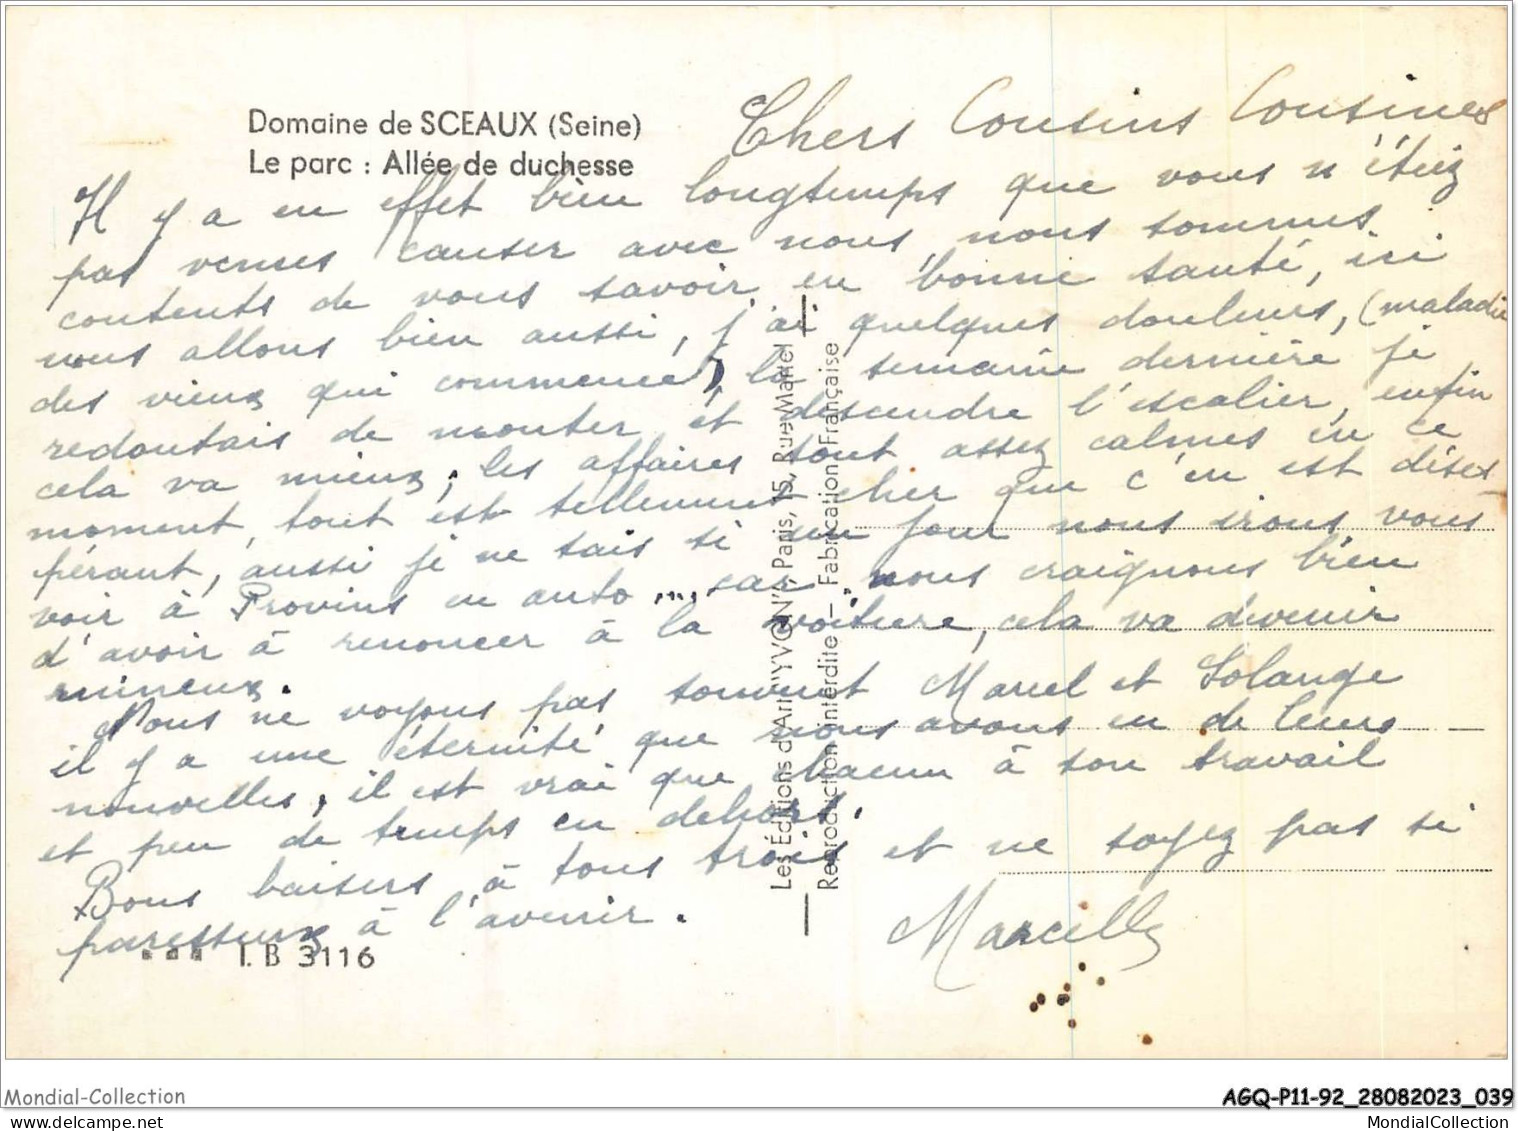 Domaine de SCEAUX (Seine)
Le parc : Allée de duchesse
Chers Cousins Cousines
Il y a en effet bien longtemps que vous n'étiez
pas venues causer avec nous, nous sommes
contents de vous savoir en bonne santé, ici
nous allons bien aussi, j'ai quelques douleurs, (maladie
des vieux qui commence), la semaine dernière je
redoutais de monter et descendre l'escalier, enfin
cela va mieux, les affaires sont assez calmes en ce
moment, tout est tellement cher que c'en est déses
pérant, aussi je ne sais si un jour nous irons vous
voir à Provins en auto .... car nous craignons bien
d'avoir à renoncer à la voiture, cela va devenir
ruineux.
Nous ne voyons pas souvent Marcel et Solange
il y a une éternité que nous avons eu de leurs
nouvelles, il est vrai que chacun à son travail
et peu de temps en dehors.
Bons baisers à tous trois et ne soyez pas si
paresseux à l'avenir.
Marcelle
I. B 3116
Les Éditions d'Art "YVON", Paris, 15, Rue Martel
Reproduction Interdite — Fabrication Française
Mondial-Collection
AGQ-P11-92_28082023_039
MondialCollection